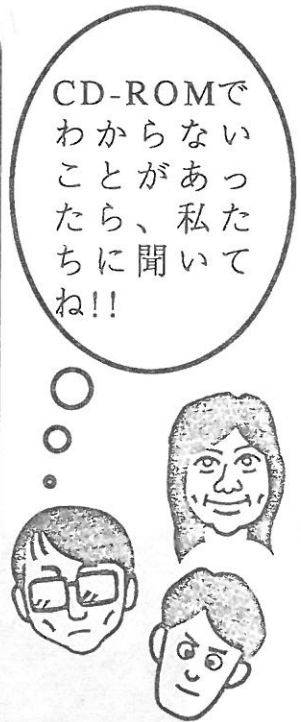 CD-ROMで
わからない
ことがあっ
たら、私た
ちに聞いて
ね!!